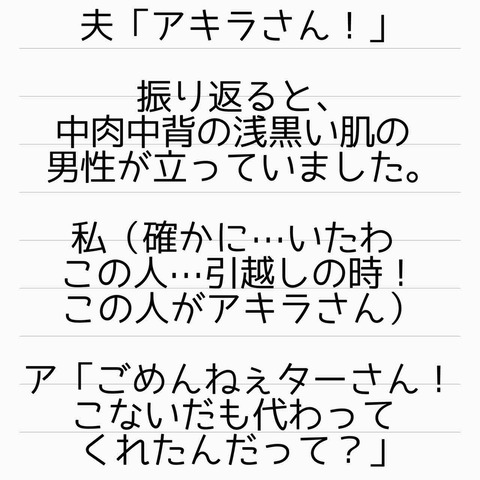 夫「アキラさん！」
振り返ると、
中肉中背の浅黒い肌の
男性が立っていました。
私（確かに…いたわ
この人…引越しの時！
この人がアキラさん）
ア「ごめんねぇターさん！
こないだも代わって
くれたんだって？」